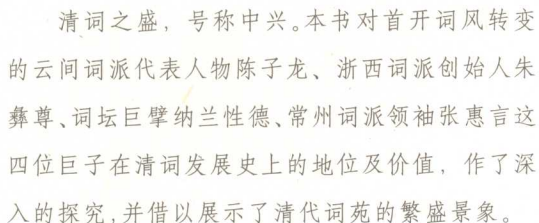 清词之盛，号称中兴。本书对首开词风转变
的云间词派代表人物陈子龙、浙西词派创始人朱
彝尊、词坛巨擘纳兰性德、常州词派领袖张惠言这
四位巨子在清词发展史上的地位及价值，作了深
入的探究，并借以展示了清代词苑的繁盛景象。